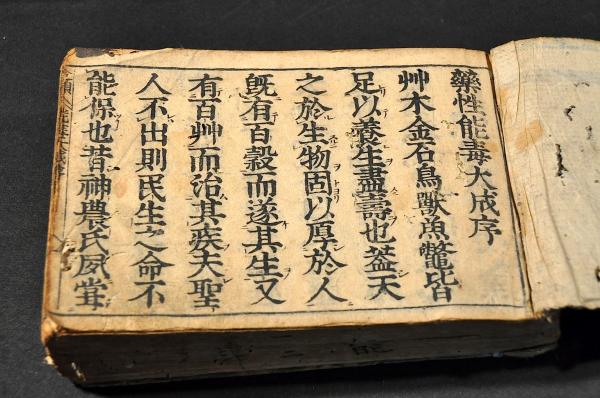 藥性能毒大成序
艸木金石鳥獸魚鼈皆
足以養生盡壽也葢天
之於生物固以厚於人
旣有百穀而遂其生又
有百艸而治其疾夫聖
人不出則民生之命不
能保也昔神農氏夙嘗